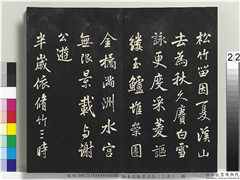 松竹留因夏溪山
去為秋久賡白雪
詠更度采菱謳
縷玉鱸堆案團
金橘滿洲水宮
無限景載与謝
公遊
半歲依脩竹三時